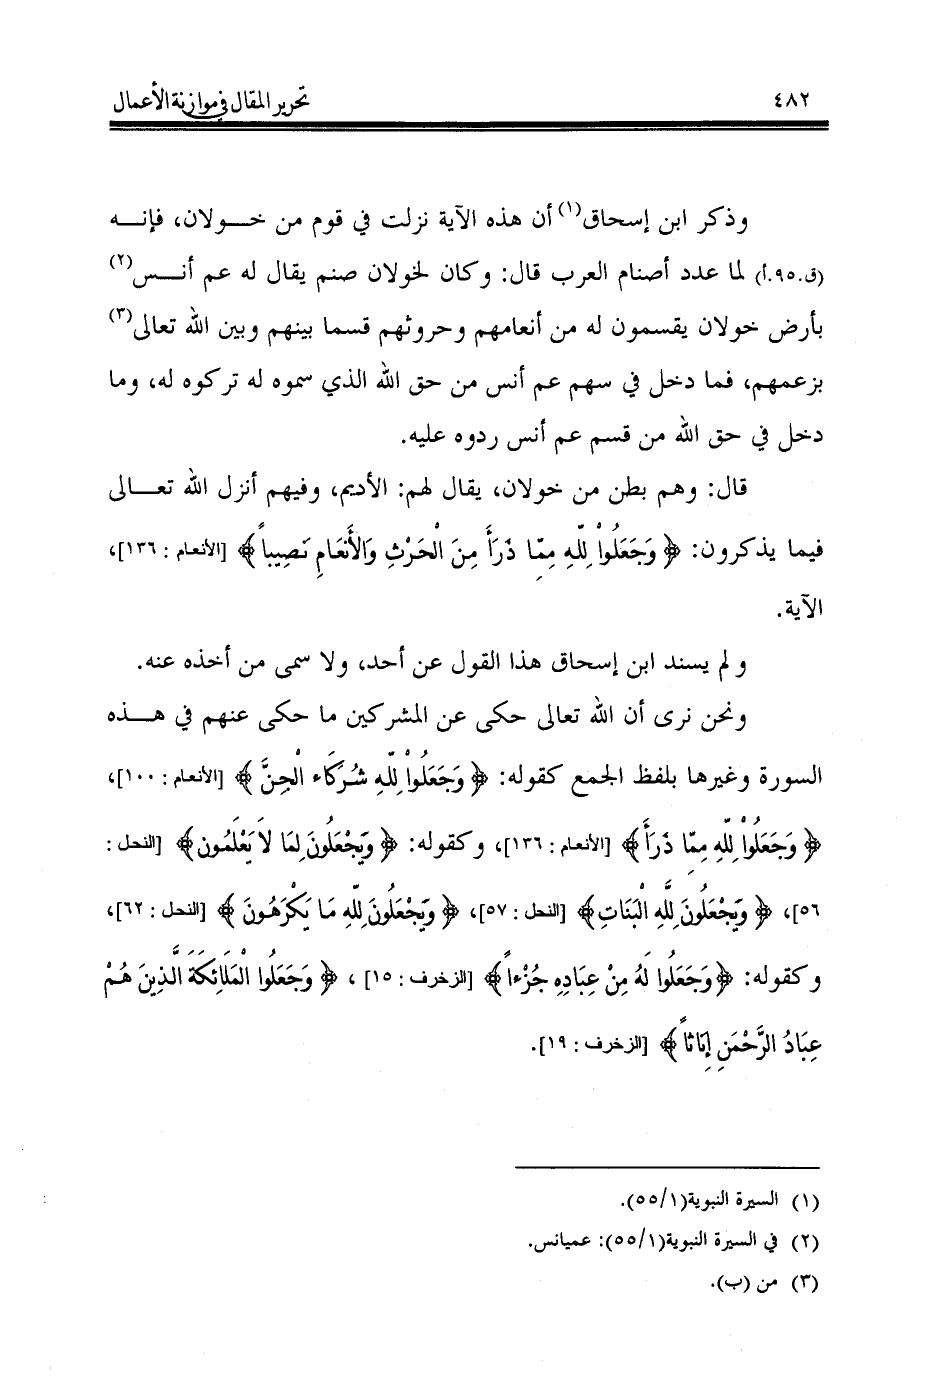 ٤٨٢ تحرير المقال في موازنة الأعمال
وذكر ابن إسحاق(١) أن هذه الآية نزلت في قوم من خولان، فإنه
(ق.٩٥.أ) لما عدد أصنام العرب قال: وكان لخولان صنم يقال له عم أنس(٢)
بأرض خولان يقسمون له من أنعامهم وحروثهم قسما بينهم وبين الله تعالى(٣)
بزعمهم، فما دخل في سهم عم أنس من حق الله الذي سموه له تركوه له، وما
دخل في حق الله من قسم عم أنس ردوه عليه.
قال: وهم بطن من خولان، يقال لهم: الأديم، وفيهم أنزل الله تعالى
فيما يذكرون: ﴿وَجَعَلُواْ لِلّهِ مِمّا ذَرَأَ مِنَ الْحَرْثِ وَالأَنْعَامِ نَصِيباً﴾ [الأنعام : ١٣٦]،
الآية.
ولم يسند ابن إسحاق هذا القول عن أحد، ولا سمى من أخذه عنه.
ونحن نرى أن الله تعالى حكى عن المشركين ما حكى عنهم في هذه
السورة وغيرها بلفظ الجمع كقوله: ﴿وَجَعَلُواْ لِلّهِ شُرَكَاء الْجِنَّ﴾ [الأنعام : ١٠٠]،
﴿وَجَعَلُواْ لِلّهِ مِمّا ذَرَأَ﴾ [الأنعام : ١٣٦]، وكقوله: ﴿وَيَجْعَلُونَ لِمَا لاَ يَعْلَمُون﴾ [النحل :
٥٦]، ﴿وَيَجْعَلُونَ لِلّهِ الْبَنَاتِ﴾ [النحل : ٥٧]، ﴿وَيَجْعَلُونَ لِلّهِ مَا يَكْرَهُونَ﴾ [النحل : ٦٢]،
وكقوله: ﴿وَجَعَلُوا لَهُ مِنْ عِبَادِهِ جُزْءاً﴾ [الزخرف : ١٥]، ﴿وَجَعَلُوا الْمَلَائِكَةَ الَّذِينَ هُمْ
عِبَادُ الرَّحْمَنِ إِنَاثاً﴾ [الزخرف : ١٩].
(١) السيرة النبوية(٥٥/١).
(٢) في السيرة النبوية(٥٥/١): عميانس.
(٣) من (ب).